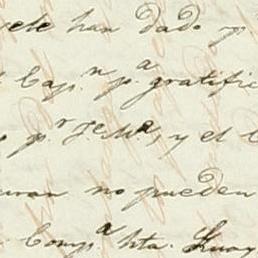 ele han dado y
Cap.n p.a gratific
p.r J.e M.a, y el C
uran no pueden
Comp.a hta.